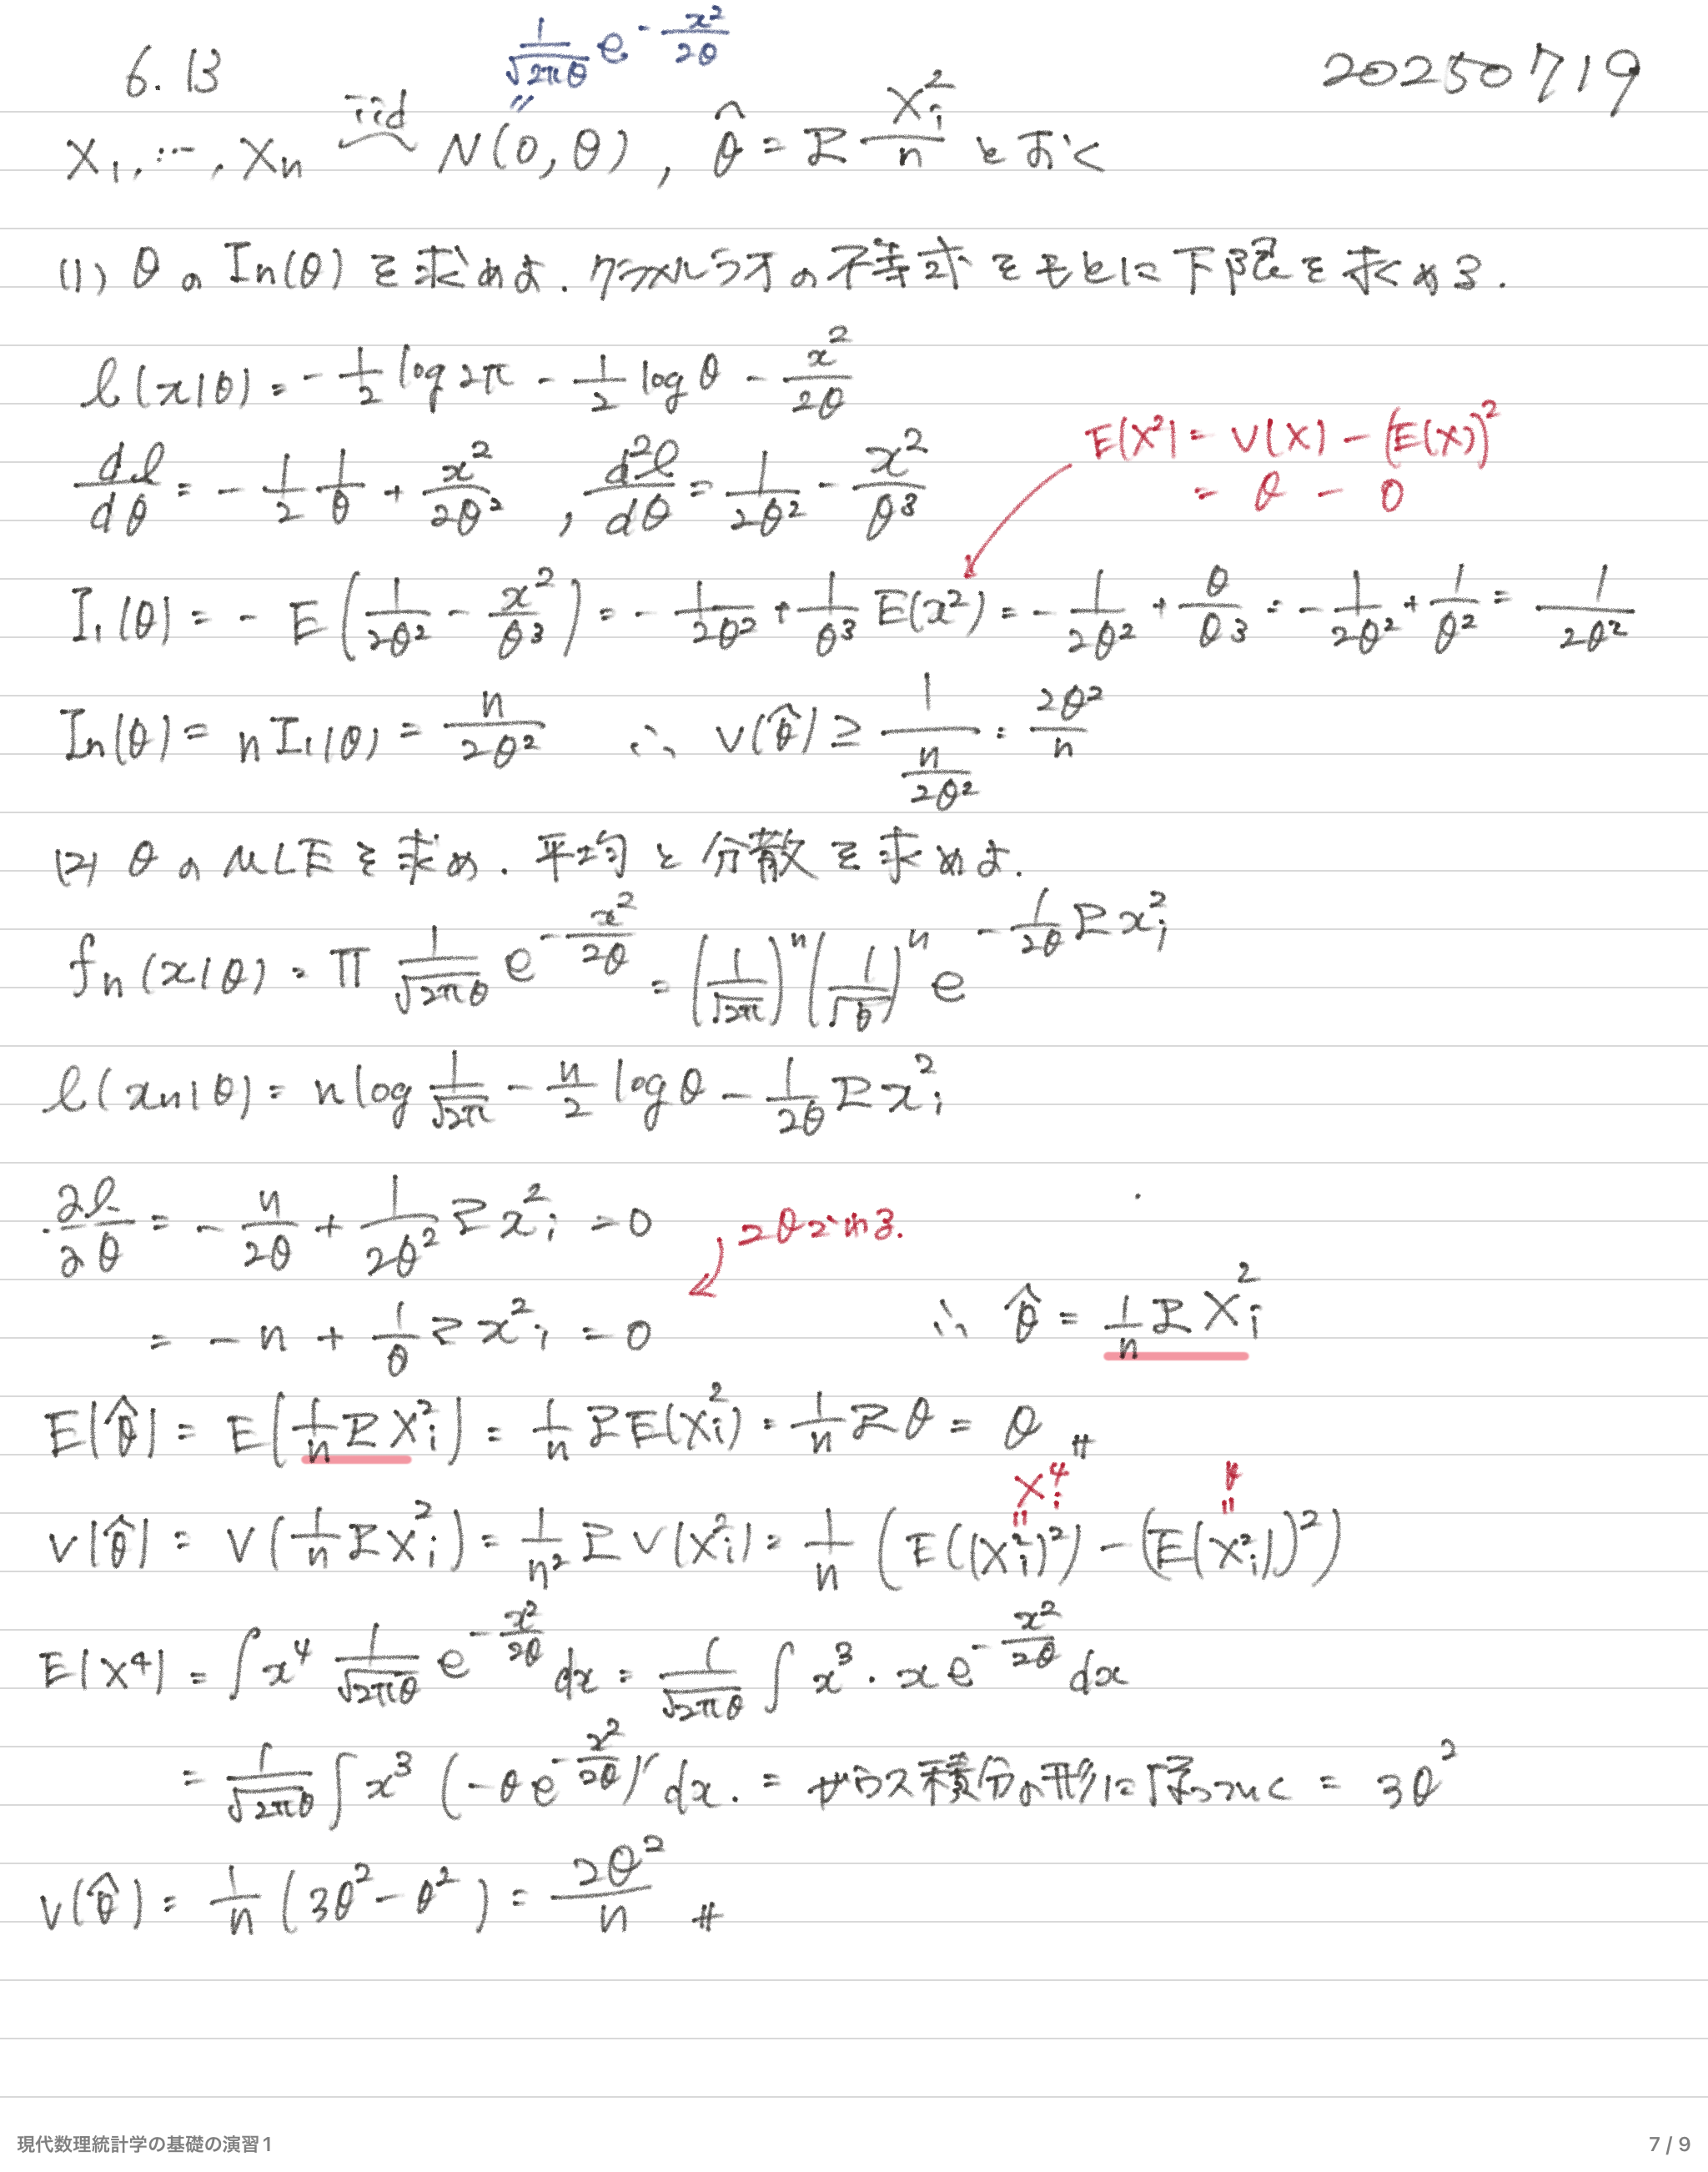 6.13
20250719
1/√(2πθ) e^{-x²/2θ}
X₁, …, Xₙ ~iid N(0, θ), θ̂ = Σ Xᵢ²/n とおく
(1) θ の Iₙ(θ) を求めよ. クラメルラオの不等式をもとに下限を求める.
l(x|θ) = -1/2 log 2π - 1/2 log θ - x²/2θ
dl/dθ = -1/2 1/θ + x²/2θ² , d²l/dθ = 1/2θ² - x²/θ³
E(X²) = V(X) - (E(X))²
= θ - 0
I₁(θ) = - E(1/2θ² - x²/θ³) = -1/2θ² + 1/θ³ E(x²) = -1/2θ² + θ/θ³ = -1/2θ² + 1/θ² = 1/2θ²
Iₙ(θ) = n I₁(θ) = n/2θ² ∴ V(θ̂) ≥ 1/(n/2θ²) = 2θ²/n
(2) θ の MLE を求め. 平均と分散を求めよ.
fₙ(x|θ) = Π 1/√(2πθ) e^{-x²/2θ} = (1/√2π)ⁿ (1/√θ)ⁿ e^{-1/2θ Σxᵢ²}
l(xₙ|θ) = n log 1/√2π - n/2 log θ - 1/2θ Σxᵢ²
∂l/∂θ = -n/2θ + 1/2θ² Σxᵢ² = 0
2θでわる.
= -n + 1/θ Σxᵢ² = 0 ∴ θ̂ = 1/n ΣXᵢ²
E(θ̂) = E(1/n ΣXᵢ²) = 1/n ΣE(Xᵢ²) = 1/n Σθ = θ //
Xᵢ⁴ θ
V(θ̂) = V(1/n ΣXᵢ²) = 1/n² ΣV(Xᵢ²) = 1/n (E((Xᵢ²)²) - (E(Xᵢ²))²)
E(X⁴) = ∫x⁴ 1/√(2πθ) e^{-x²/2θ} dx = 1/√(2πθ) ∫x³・x e^{-x²/2θ} dx
= 1/√(2πθ) ∫x³ (-θe^{-x²/2θ})′ dx. = ガウス積分の形に帰っていく = 3θ²
V(θ̂) = 1/n (3θ² - θ²) = 2θ²/n //
現代数理統計学の基礎の演習1
7 / 9